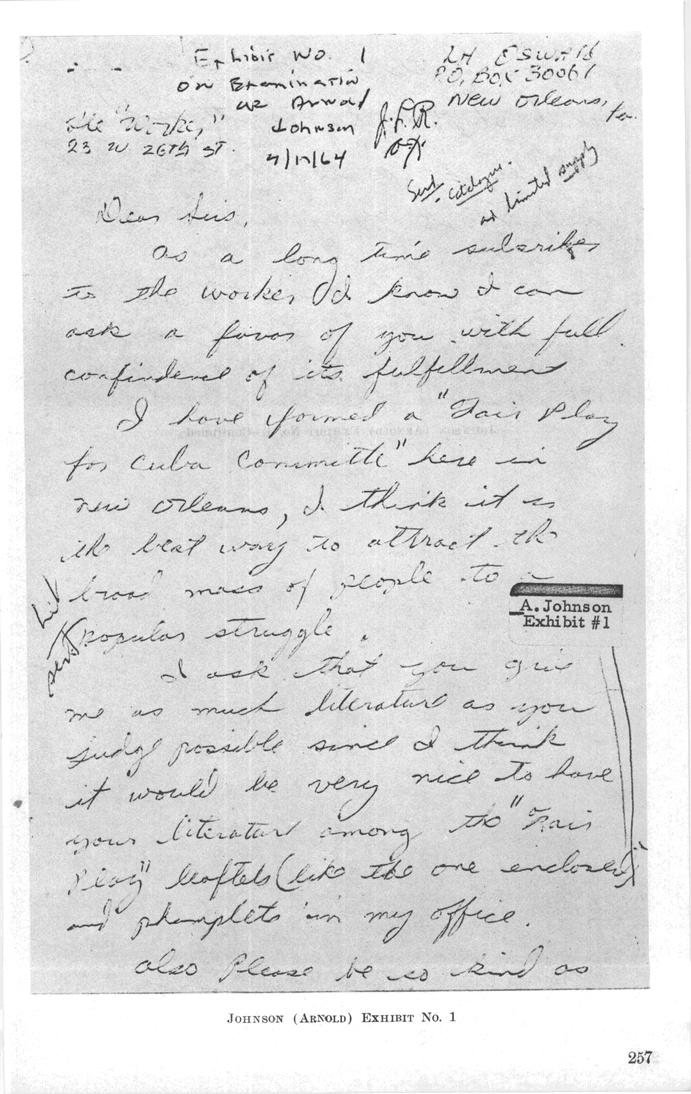 Exhibit No. 1
on Examination
of Arnold
Johnson
4/17/64
J.L.R.
LH OSWALD
P.O. BOX 30061
New Orleans, La.
the "Worker,"
23 W 26TH ST.
Send catalogue.
limited supply
Dear Sirs,
As a long time subsriber
to the worker I know I can
ask a favor of you with full
confindence of its fulfillment
I have formed a "Fair Play
for Cuba Committe" here in
New Orleans, I think it is
the best way to attract the
broad mass of people to a
popular struggle.
I ask that you give
me as much literature as you
judge possible since I think
it would be very nice to have
your literature among the "Fair
Play" leaftets (like the one enclosed)
and phamplets in my office.
Also Please be so kind as
Lit
sent
A.Johnson
Exhibit #1
JOHNSON (ARNOLD) EXHIBIT NO. 1
257